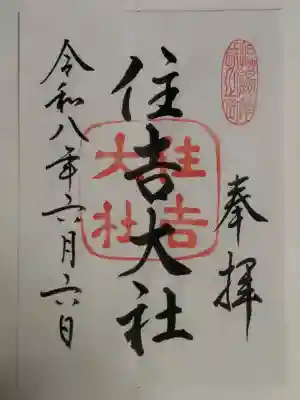 奉拝
住吉大社
住吉大社
令和八年六月六日